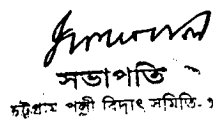 সভাপতি
চট্টগ্রাম পল্লী বিদ্যুৎ সমিতি- ১